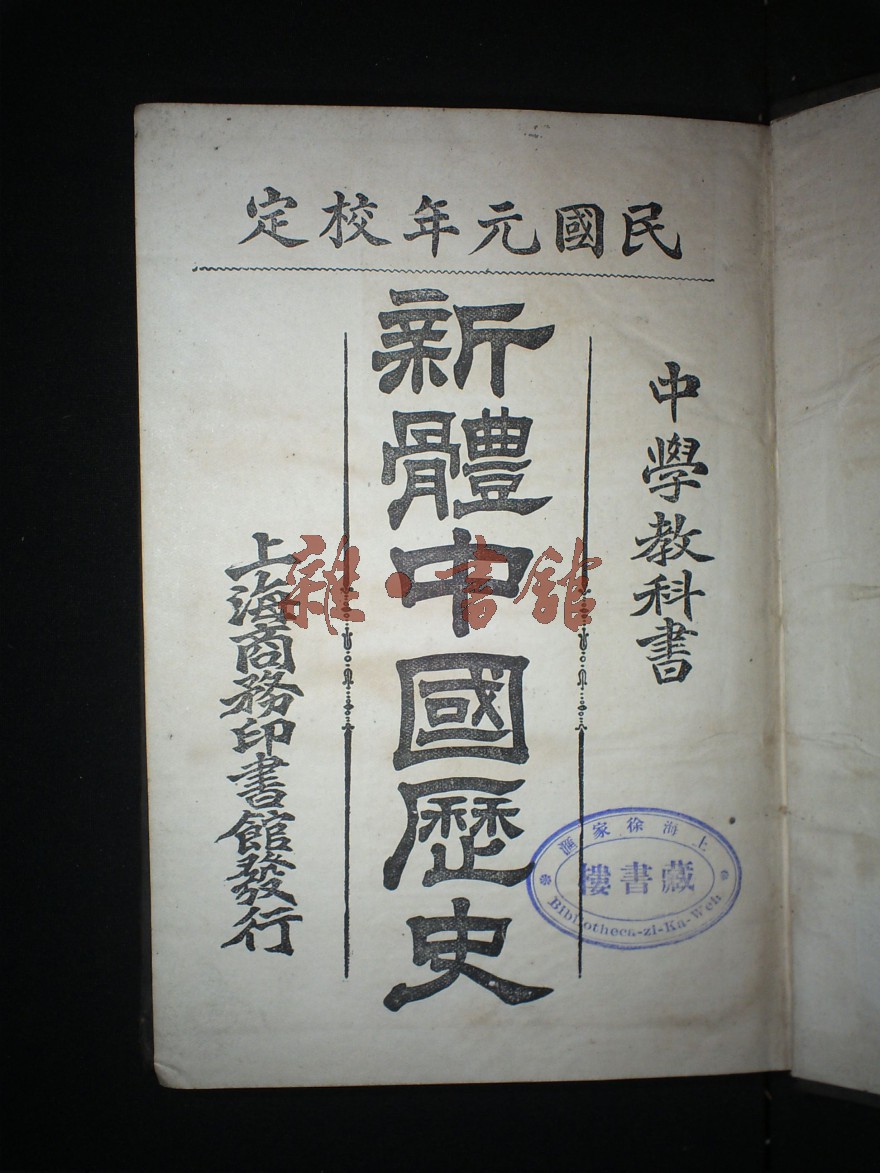 民國元年校定
中學教科書
新體中國歷史
上海商務印書館發行
雜·書館
上海徐家匯
藏書樓
Bibliotheca-zi-Ka-Weh